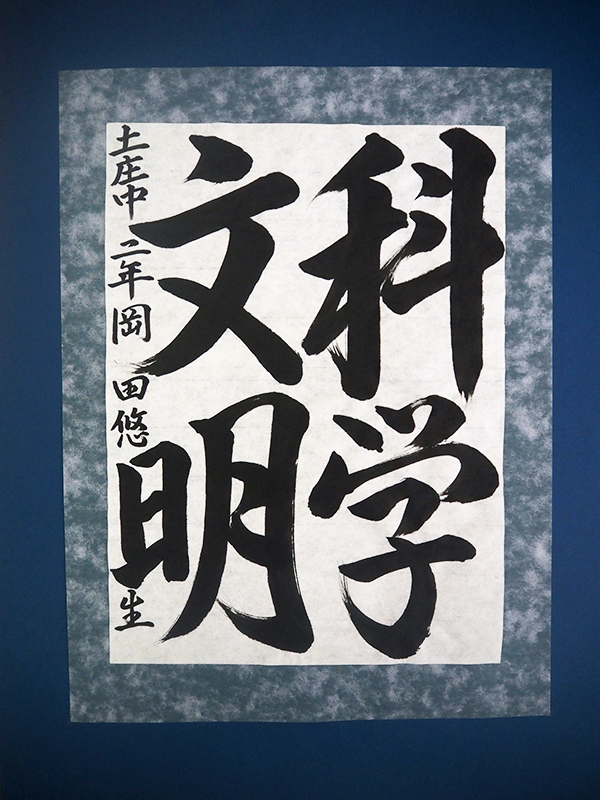 科学
文明
土庄中二年岡田悠生